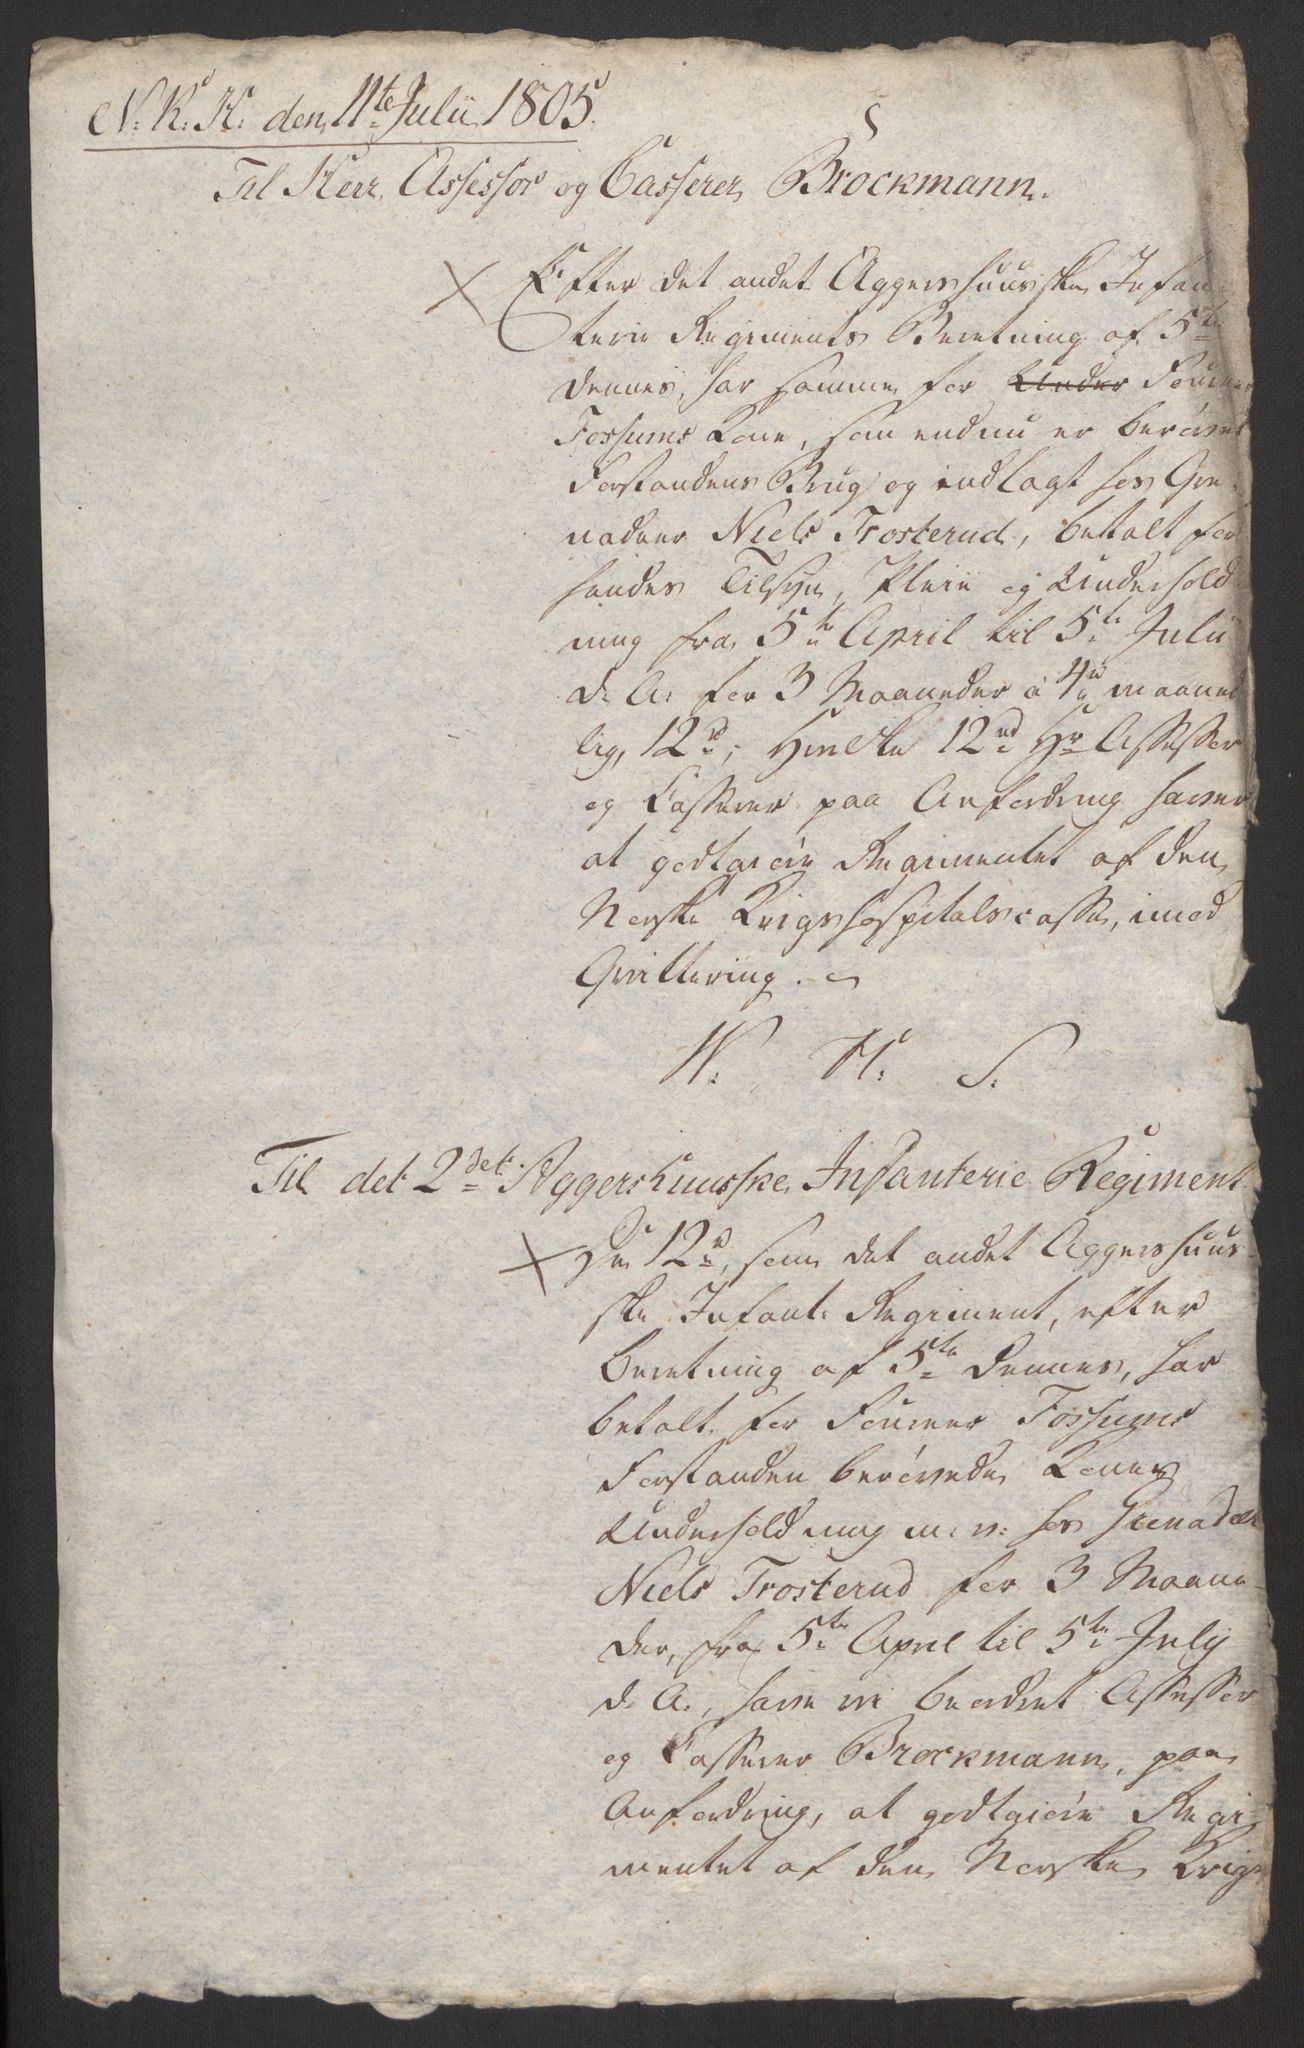 N. K. H. den 11te Julii 1805.
Til Herr Assessor og Casserer Brockmann.
Efter det andet Aggershuusiske Infan-
terie Regiments Beretning af 5te
dennes, har samme for Under Fourier
Fossums Kone, som endnu er berövet
Forstandens Brug og indlagt hos Gre-
nadeer Niels Trosterud, betalt for
hendes Tilsyn, Pleie og Underhold-
ning fra 5te April til 5te Julii
d. A. for 3 Maaneder a 4 rd maaned-
lig, 12 rd; Hvilke 12 rd Hr Assessor
og Casserer paa Anfordring haver
at godtgiöre Regimentet af den
Norske Krigshospitalscasse, imod
Qvittering.
N. H. S.
Til det 2det Aggershuusske Infanterie Regiment
De 12 rd, som det andet Aggershuus-
ske Infant. Regiment, efter
Beretning af 5te dennes, har
betalt for Fourier Fossums
Forstanden berövede Kones
Underholdning m. v. hos Grenadeer
Niels Trosterud for 3 Maane-
der, fra 5te April til 5te July
d. A., have vi beordret Assessor
og Casserer Brockmann, paa
Anfordring, at godtgiöre Regi-
mentet af den Norske Krigs